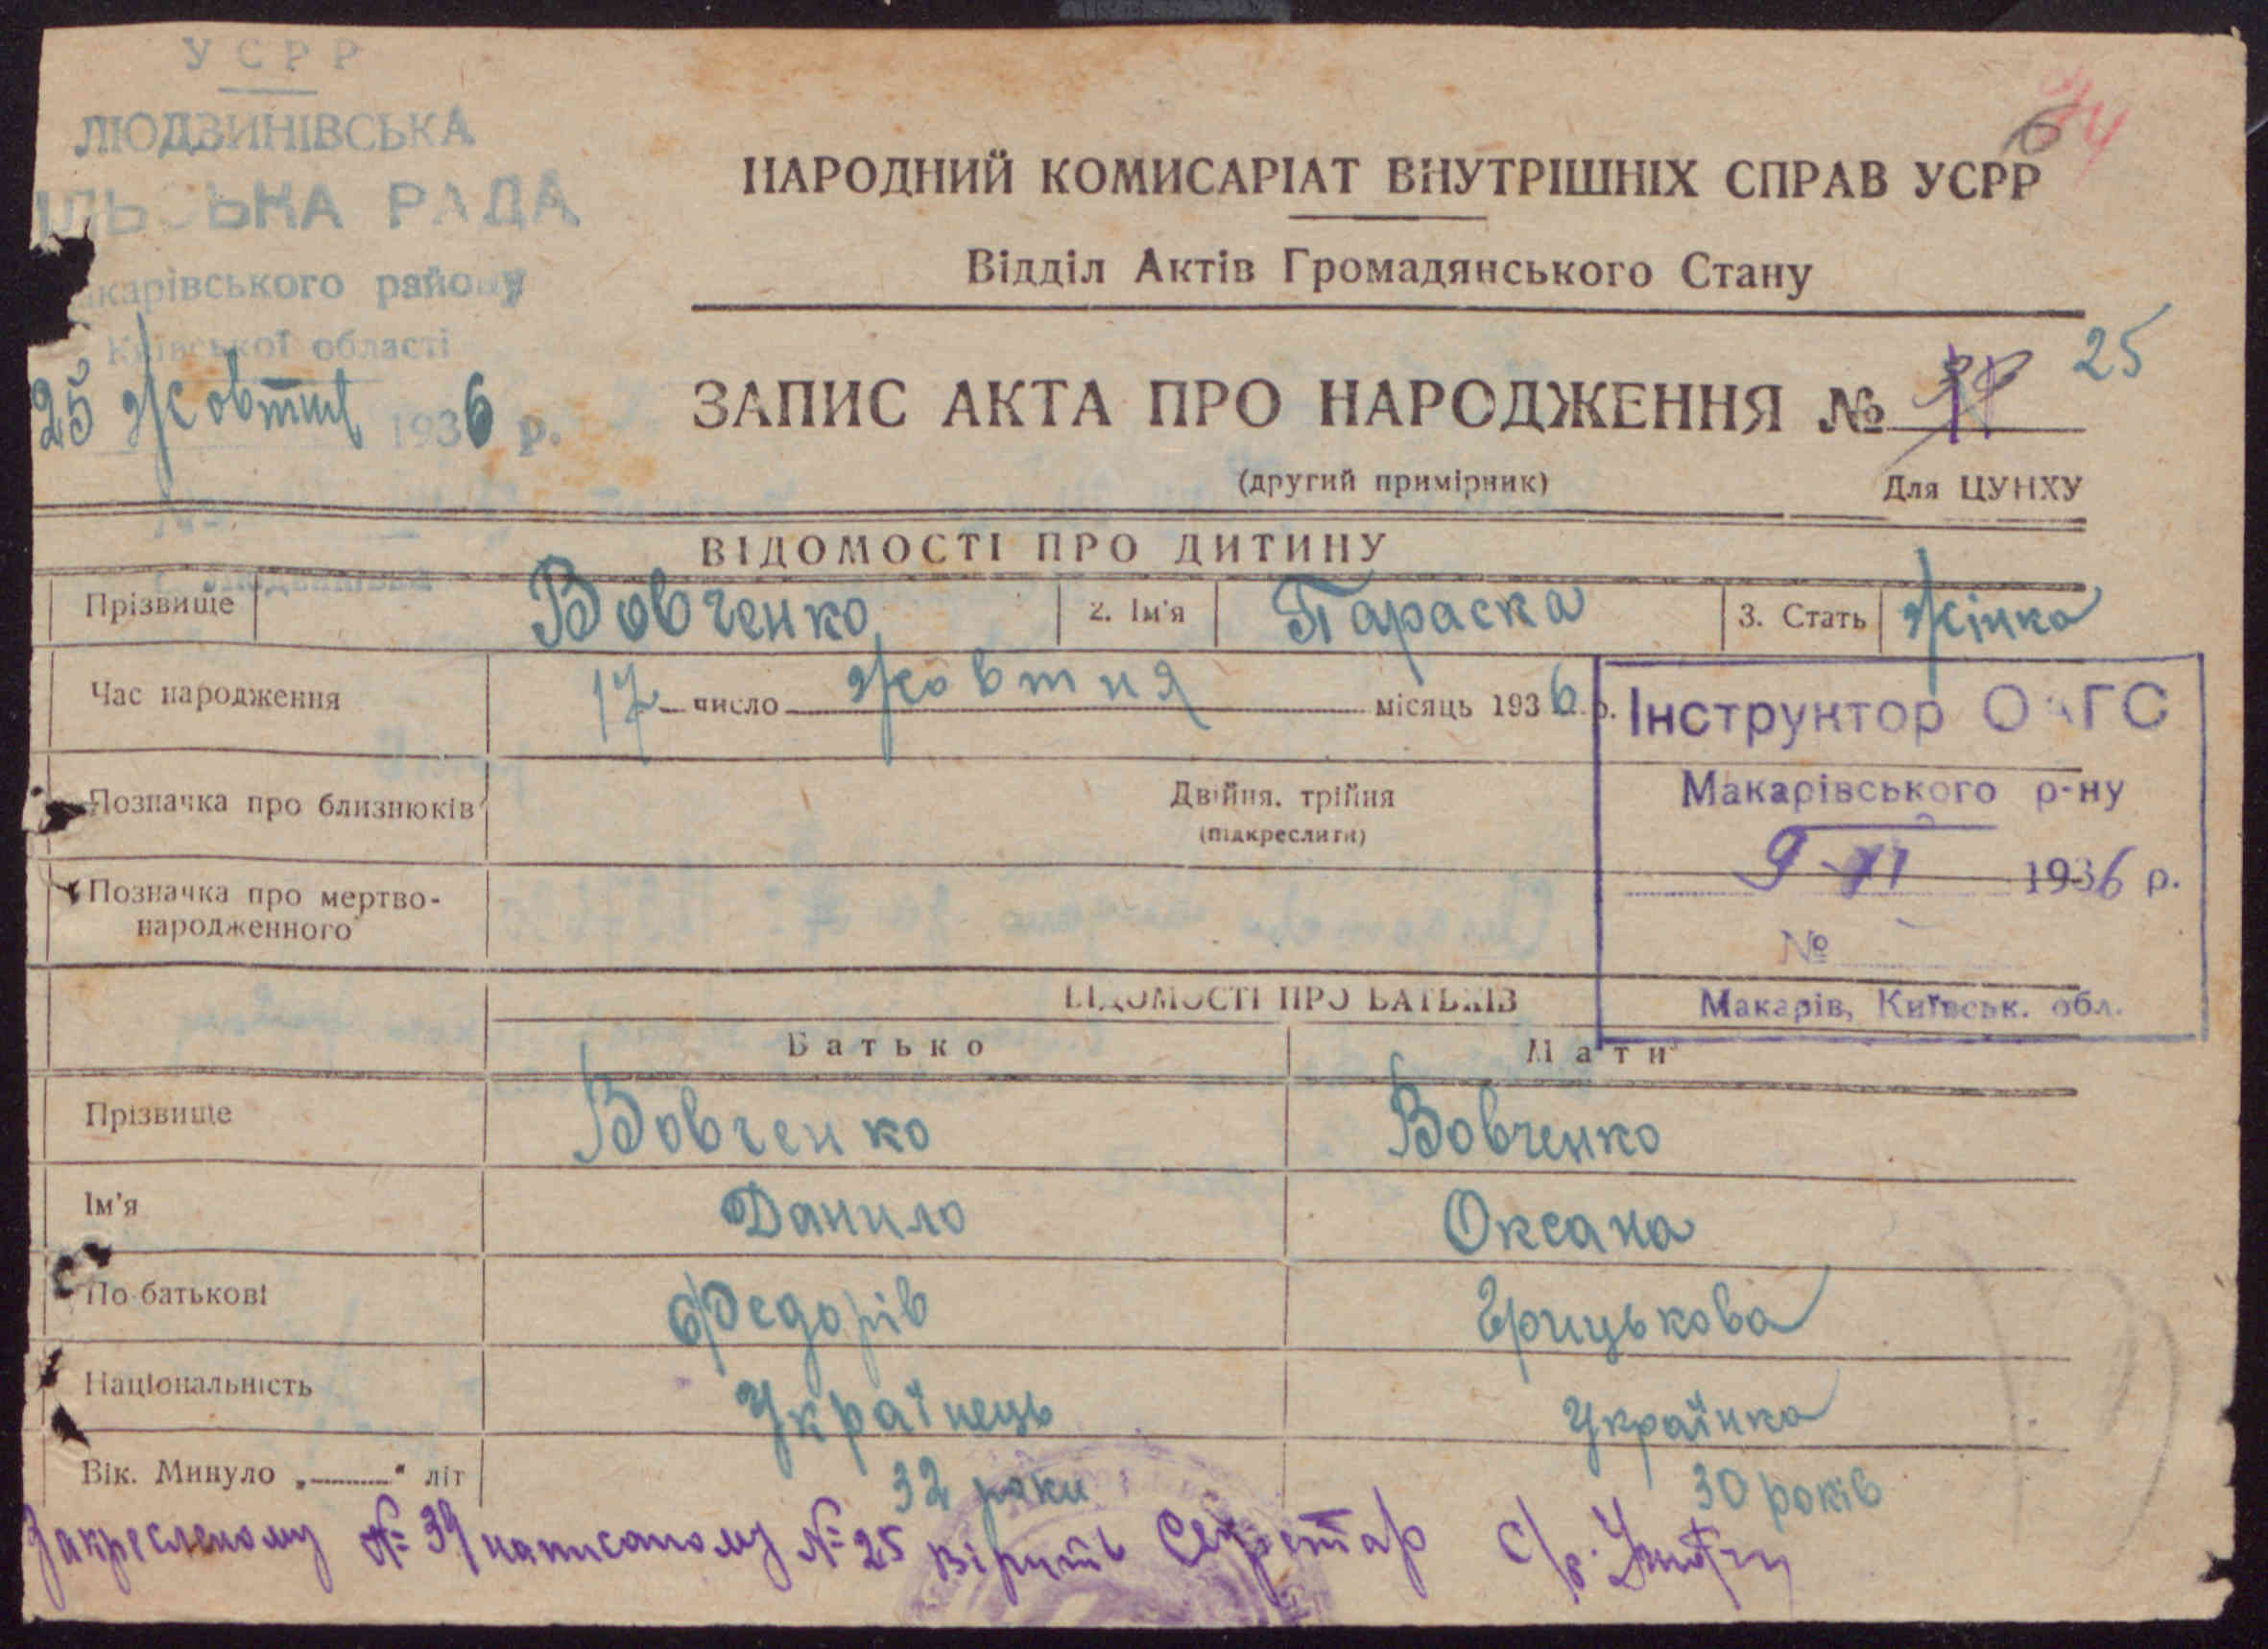 УСРР
ЛЮДВИНІВСЬКА
ІЛЬСЬКА РАДА
акарівського району
Київської області
25 Жовтня 1936 р.
НАРОДНИЙ КОМИСАРІАТ ВНУТРІШНІХ СПРАВ УСРР
Відділ Актів Громадянського Стану
ЗАПИС АКТА ПРО НАРОДЖЕННЯ № 39 25
(другий примірник) Для ЦУНХУ
ВІДОМОСТІ ПРО ДИТИНУ
Прізвище Вовченко 2. Ім'я Параска 3. Стать жінка
Час народження 17 число жовтня місяць 1936 р.
Інструктор ОАГС
Макарівського р-ну
9-XI 1936 р.
№
Макарів, Київськ. обл.
Позначка про близнюків Двійня, трійня
(підкреслити)
Позначка про мертво-
народженного
ВІДОМОСТІ ПРО БАТЬКІВ
Батько Мати
Прізвище Вовченко Вовченко
Ім'я Данило Оксана
По батькові Федорів Грицькова
Національність Українець Українка
Вік. Минуло „ " літ 32 роки 30 років
Закресленому № 39 написаному № 25 вірить Секретар С/р.